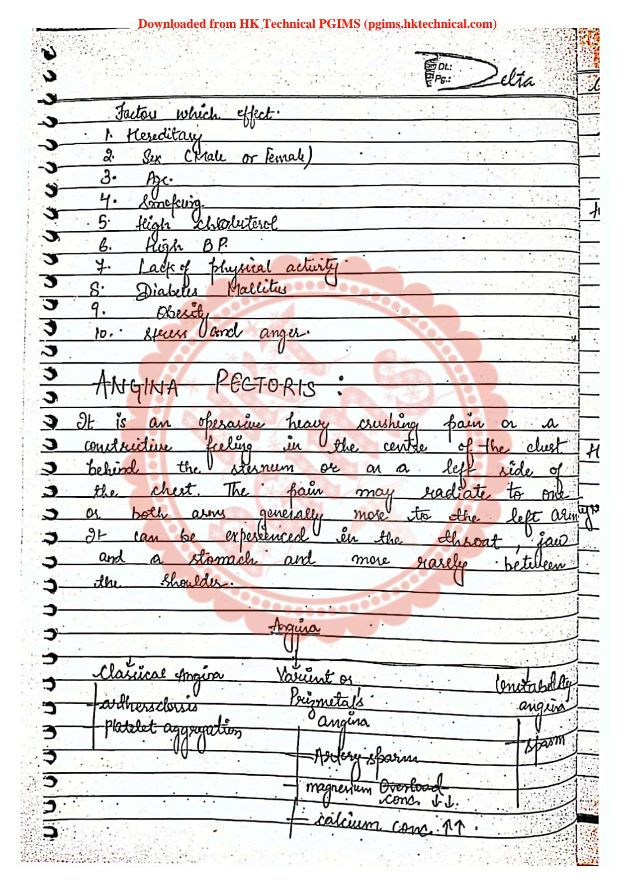 Downloaded from HK Technical PGIMS (pgims.hktechnical.com)
DL:
Pg.:
Delta
Factors which effect.
1. Hereditary
2. Sex (Male or Female)
3. Age.
4. Smoking.
5. High
6. High B.P.
7. Lack of physical activity
8. Diabetes Mallitus
9. Obesity
10. stress and anger.
ANGINA PECTORIS :
It is an heavy crushing pain or a
constrictive feeling in the centre of the chest
behind the sternum or on a left side of
the chest. The pain may radiate to one
or both arms generally more to the left arm
It can be experienced in the throat, jaw
and a stomach and more rarely between
the shoulder.
Angina
Classical Angina Varient or Unstability
Prizmetal's angina
angina
platelet aggregation spasm
Artery spasm
magnesium Overload
conc. ↓↓.
calcium conc. ↑↑.